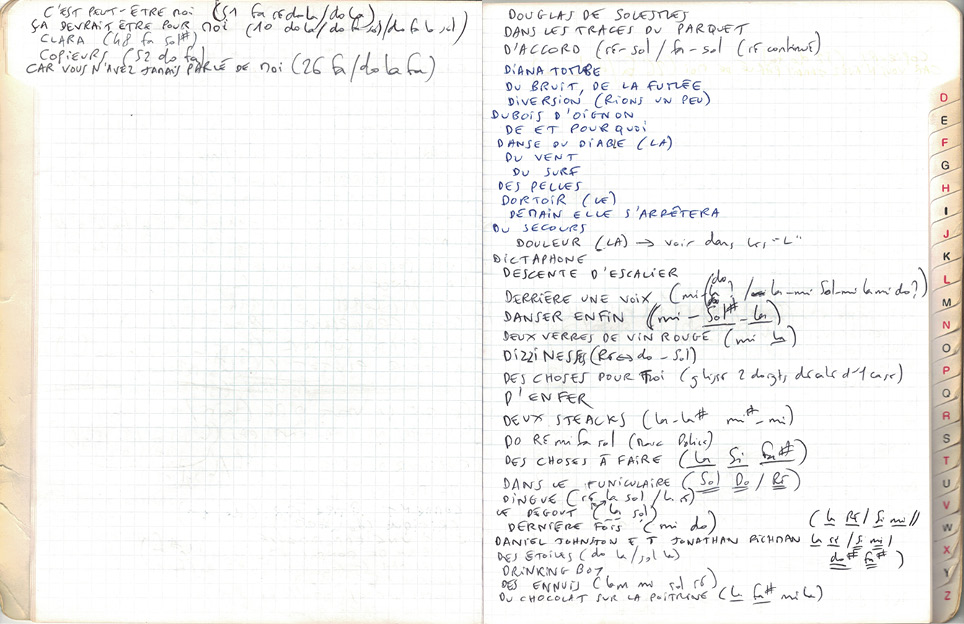 C'EST PEUT-ÊTRE MOI (51 fa ré do la / do la)
ÇA DEVRAIT ÊTRE POUR MOI (10 do la / do fa sol / do fa la sol)
CLARA (48 fa sol#)
COPIEUR (52 do fa)
CAR VOUS N'AVEZ JAMAIS PARLÉ DE MOI (26 fa / do la fa)
DOUGLAS DE SOLESMES
DANS LES TRACES DU PARQUET
D'ACCORD (ré-sol / fa-sol (ré continue)
DIANA
DU BRUIT, DE LA FUMÉE
DIVERSION (RIONS UN PEU)
DUBOIS D'OIGNON
DE ET POURQUOI
DANSE DU DIABLE (LA)
DU VENT
DU SURF
DES PELLES
DORTOIR (LE)
DEMAIN ELLE S'ARRÊTERA
DU SECOURS
DOULEUR (LA) → voir dans les "L"
DICTAPHONE
DESCENTE D'ESCALIER
DERRIÈRE UNE VOIX (mi do la-mi Sol-mi la mi do?)
DANSER ENFIN (mi - Sol# - la)
DEUX VERRES DE VIN ROUGE (mi la)
DIZZINESSES (Ré ↔ do - sol)
DES CHOSES POUR TOI (glisser 2 doigts décalé d'1 case)
D'ENFER
DEUX STEACKS (la-la# mi#-mi)
DO RÉ mi fa sol (Marc Police)
DES CHOSES À FAIRE (la Si fa#)
DANS LE FUNICULAIRE (Sol Do / Ré)
DINGUE (ré la sol / la ré)
LE DÉGOUT (la sol)
DERNIÈRE FOIS (mi do)
DANIEL JOHNSTON ET JONATHAN RICHMAN (la Ré / Si mi // la ré / si mi / do# fa#)
DES ÉTOILES (do la / sol la)
DRINKING BOY
DES ENNUIS (lam mi sol ré)
DU CHOCOLAT SUR LA POITRINE (la fa# mi la)
D
E
F
G
H
I
J
K
L
M
N
O
P
Q
R
S
T
U
V
W
X
Y
Z